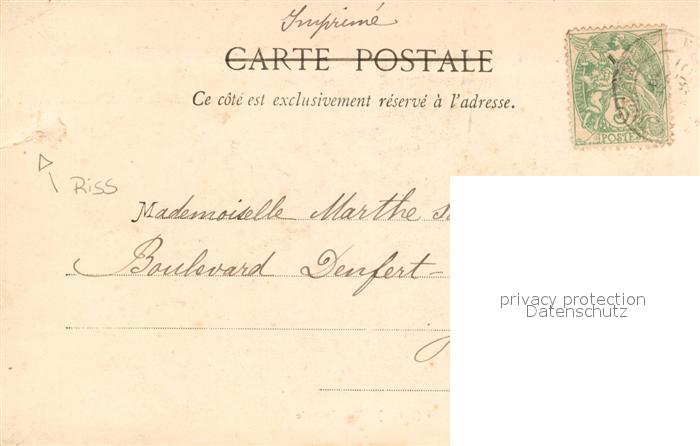 Imprimé
CARTE POSTALE
Ce côté est exclusivement réservé à l'adresse.
5
POSTES
RISS
Mademoiselle Marthe
Boulevard Denfert-
privacy protection
Datenschutz